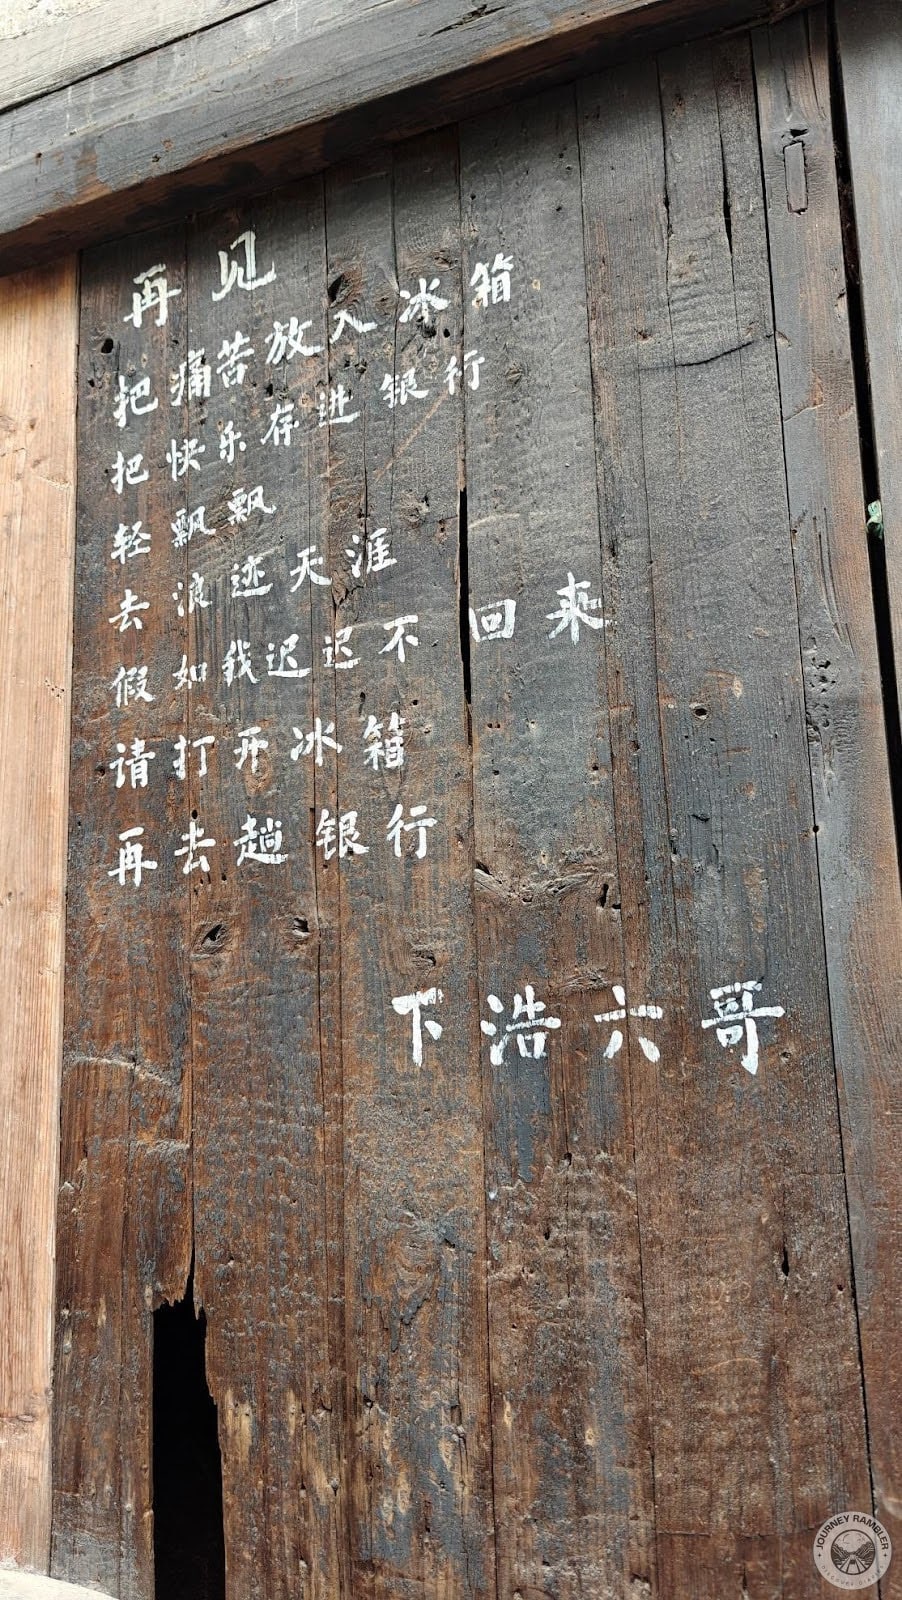 再见
把痛苦放入冰箱
把快乐存进银行
轻飘飘
去浪迹天涯
假如我迟迟不回来
请打开冰箱
再去趟银行
下浩六哥
JOURNEY RAMBLER